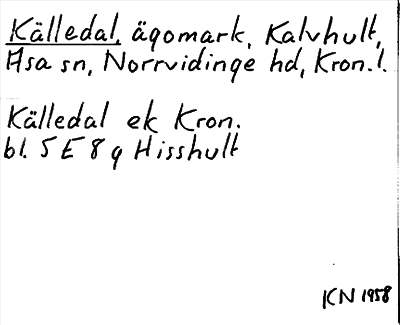 Källedal, ägomark, Kalvhult,
Asa sn, Norrvidinge hd, Kron. l.
Källedal ek Kron.
bl. 5 E 8 g Hisshult
KN 1958